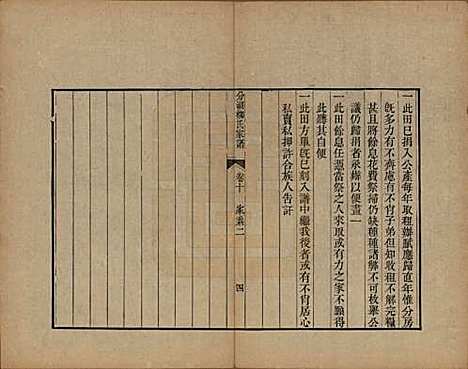 一此田已捐入公產每年取租辦賦應歸直年惟分房
既多力有不齊慮有不肖子弟但知收租不解完糧
甚且將餘息花費祭掃仍缺種種諸弊不可枚舉公
議仍歸捐者承辦以便畫一
一此田餘息任憑當祭之人來取或有力之家不願得
此聽其自便
一此田方單既已刻入譜中繼我後者或有不肖居心
私賣私押許合族人告訐
分湖柳氏家譜
卷十
家乘二
四